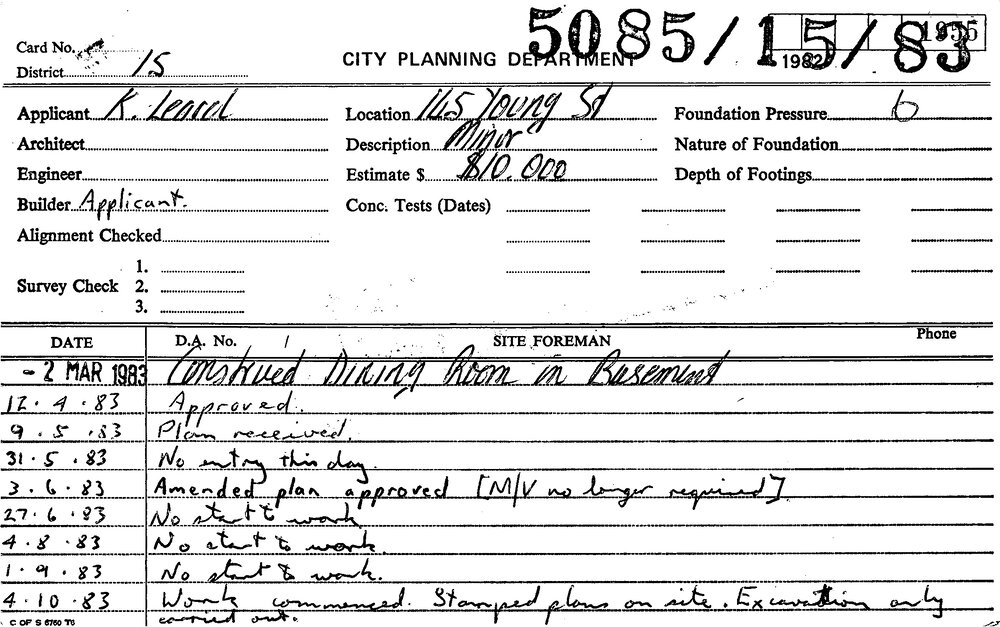 5085/15/83
Card No.
1982
District 15
CITY PLANNING DEPARTMENT
Applicant K. Leard Location 145 Young St Foundation Pressure 6
Architect Description Minor Nature of Foundation
Engineer Estimate $ $10,000 Depth of Footings
Builder Applicant. Conc. Tests (Dates)
Alignment Checked
1.
Survey Check 2.
3.
DATE D.A. No. / SITE FOREMAN Phone
- 2 MAR 1983 Construed Dining Room in Basement
12.4.83 Approved.
9.5.83 Plan received.
31.5.83 No entry this day.
3.6.83 Amended plan approved [M/V no longer required]
27.6.83 No start to work
4.8.83 No start to work.
1.9.83 No start to work.
4.10.83 Work commenced. Stamped plans on site. Excavation only
carried out.
C OF S 6760 T6